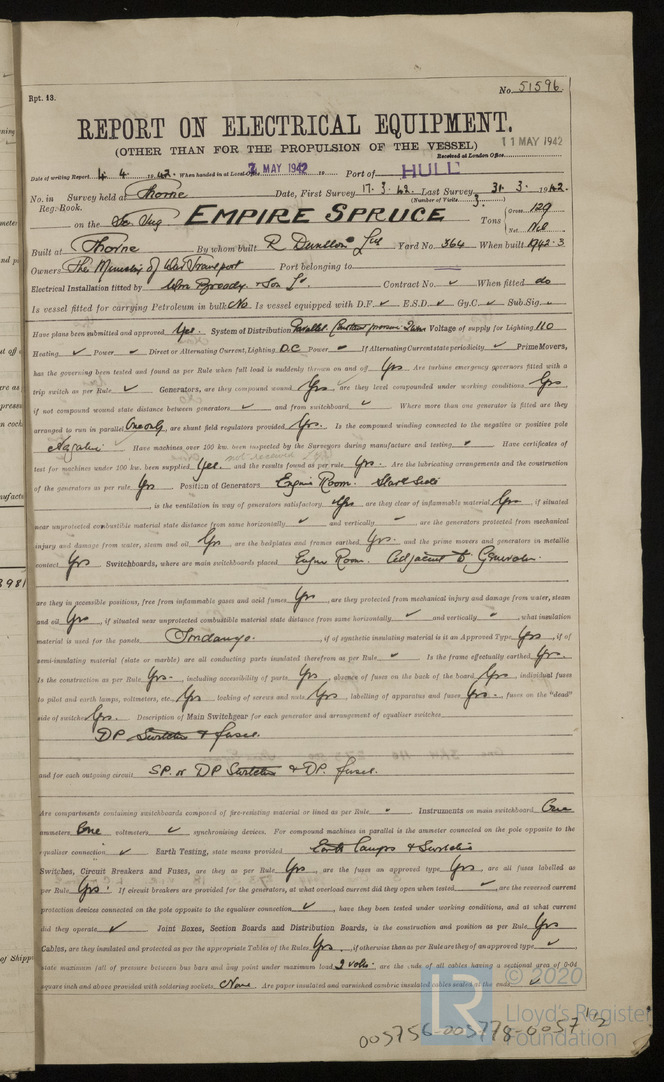 Rpt. 13.
No. 51596
REPORT ON ELECTRICAL EQUIPMENT.
(OTHER THAN FOR THE PROPULSION OF THE VESSEL)
11 MAY 1942
Received at London Office
Date of writing Report 4. 4. 1942. When handed in at Local Office 7 MAY 1942 Port of HULL
No. in Reg. Book. Survey held at Thorne Date, First Survey 17.3.42. Last Survey 31.3.1942.
(Number of Visits 3.)
on the Sc. Tug EMPIRE SPRUCE Tons Gross 129 Net Nil
Built at Thorne By whom built R. Dunston Ltd Yard No. 364 When built 1942.3
Owners The Ministry of War Transport Port belonging to
Electrical Installation fitted by Wm Broady & Son Ld. Contract No. When fitted do
Is vessel fitted for carrying Petroleum in bulk No Is vessel equipped with D.F. E.S.D. Gy.C. Sub.Sig.
Have plans been submitted and approved Yes. System of Distribution Parallel Constant pressure 2 wire Voltage of supply for Lighting 110
Heating Power Direct or Alternating Current, Lighting D.C Power If Alternating Current state periodicity Prime Movers,
has the governing been tested and found as per Rule when full load is suddenly thrown on and off Yes Are turbine emergency governors fitted with a
trip switch as per Rule Generators, are they compound wound Yes are they level compounded under working conditions Yes
if not compound wound state distance between generators and from switchboard Where more than one generator is fitted are they
arranged to run in parallel One only, are shunt field regulators provided Yes. Is the compound winding connected to the negative or positive pole
Negative Have machines over 100 kw. been inspected by the Surveyors during manufacture and testing Have certificates of
test for machines under 100 kw. been supplied Yes not received and the results found as per rule Yes. Are the lubricating arrangements and the construction
of the generators as per rule Yes Position of Generators Engine Room. Starb Side
, is the ventilation in way of generators satisfactory Yes are they clear of inflammable material Yes, if situated
near unprotected combustible material state distance from same horizontally and vertically, are the generators protected from mechanical
injury and damage from water, steam and oil Yes are the bedplates and frames earthed Yes. and the prime movers and generators in metallic
contact Yes Switchboards, where are main switchboards placed Engine Room. Adjacent to Generator.
are they in accessible positions, free from inflammable gases and acid fumes Yes, are they protected from mechanical injury and damage from water, steam
and oil Yes, if situated near unprotected combustible material state distance from same horizontally and vertically, what insulation
material is used for the panels Sindanyo., if of synthetic insulating material is it an Approved Type Yes, if of
semi-insulating material (slate or marble) are all conducting parts insulated therefrom as per Rule Is the frame effectually earthed Yes.
Is the construction as per Rule Yes., including accessibility of parts Yes, absence of fuses on the back of the board Yes, individual fuses
to pilot and earth lamps, voltmeters, etc. Yes locking of screws and nuts Yes, labelling of apparatus and fuses Yes., fuses on the "dead"
side of switches Yes. Description of Main Switchgear for each generator and arrangement of equaliser switches
DP Switches & fuses.
and for each outgoing circuit SP. or DP Switches & DP. fuses.
Are compartments containing switchboards composed of fire-resisting material or lined as per Rule Instruments on main switchboard One
ammeters One voltmeters synchronising devices. For compound machines in parallel is the ammeter connected on the pole opposite to the
equaliser connection Earth Testing, state means provided Earth lamps & Switches
Switches, Circuit Breakers and Fuses, are they as per Rule Yes, are the fuses an approved type Yes, are all fuses labelled as
per Rule Yes. If circuit breakers are provided for the generators, at what overload current did they open when tested, are the reversed current
protection devices connected on the pole opposite to the equaliser connection, have they been tested under working conditions, and at what current
did they operate Joint Boxes, Section Boards and Distribution Boards, is the construction and position as per Rule Yes
Cables, are they insulated and protected as per the appropriate Tables of the Rules Yes, if otherwise than as per Rule are they of an approved type
state maximum fall of pressure between bus bars and any point under maximum load 2 volts. are the ends of all cables having a sectional area of 0·04
square inch and above provided with soldering sockets None Are paper insulated and varnished cambric insulated cables sealed at the ends
© 2020
LR
Lloyd's Register
Foundation